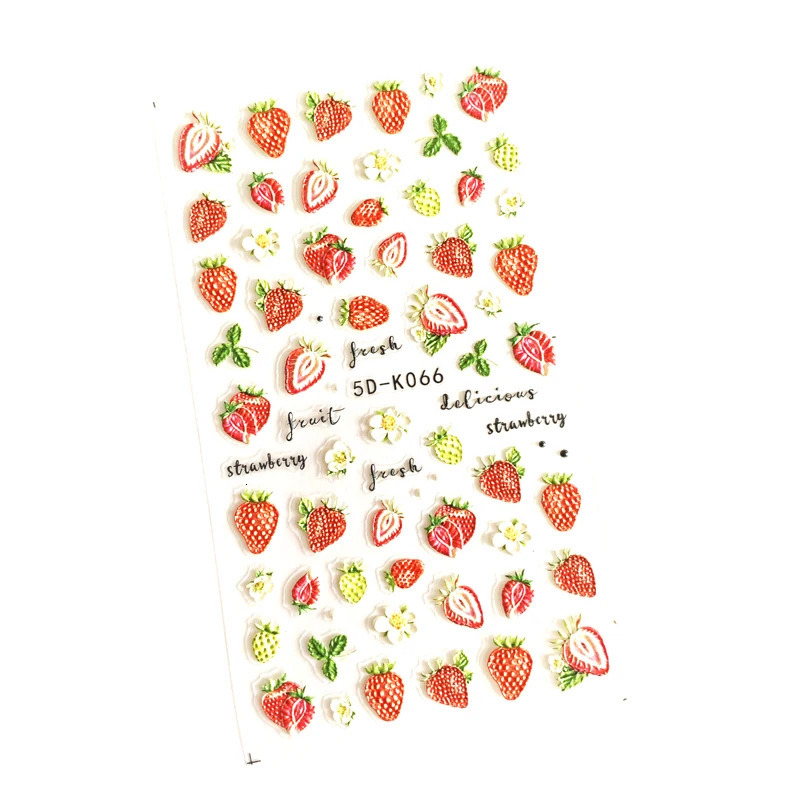 fresh
5D-K066
delicious
fruit
strawberry
strawberry
fresh